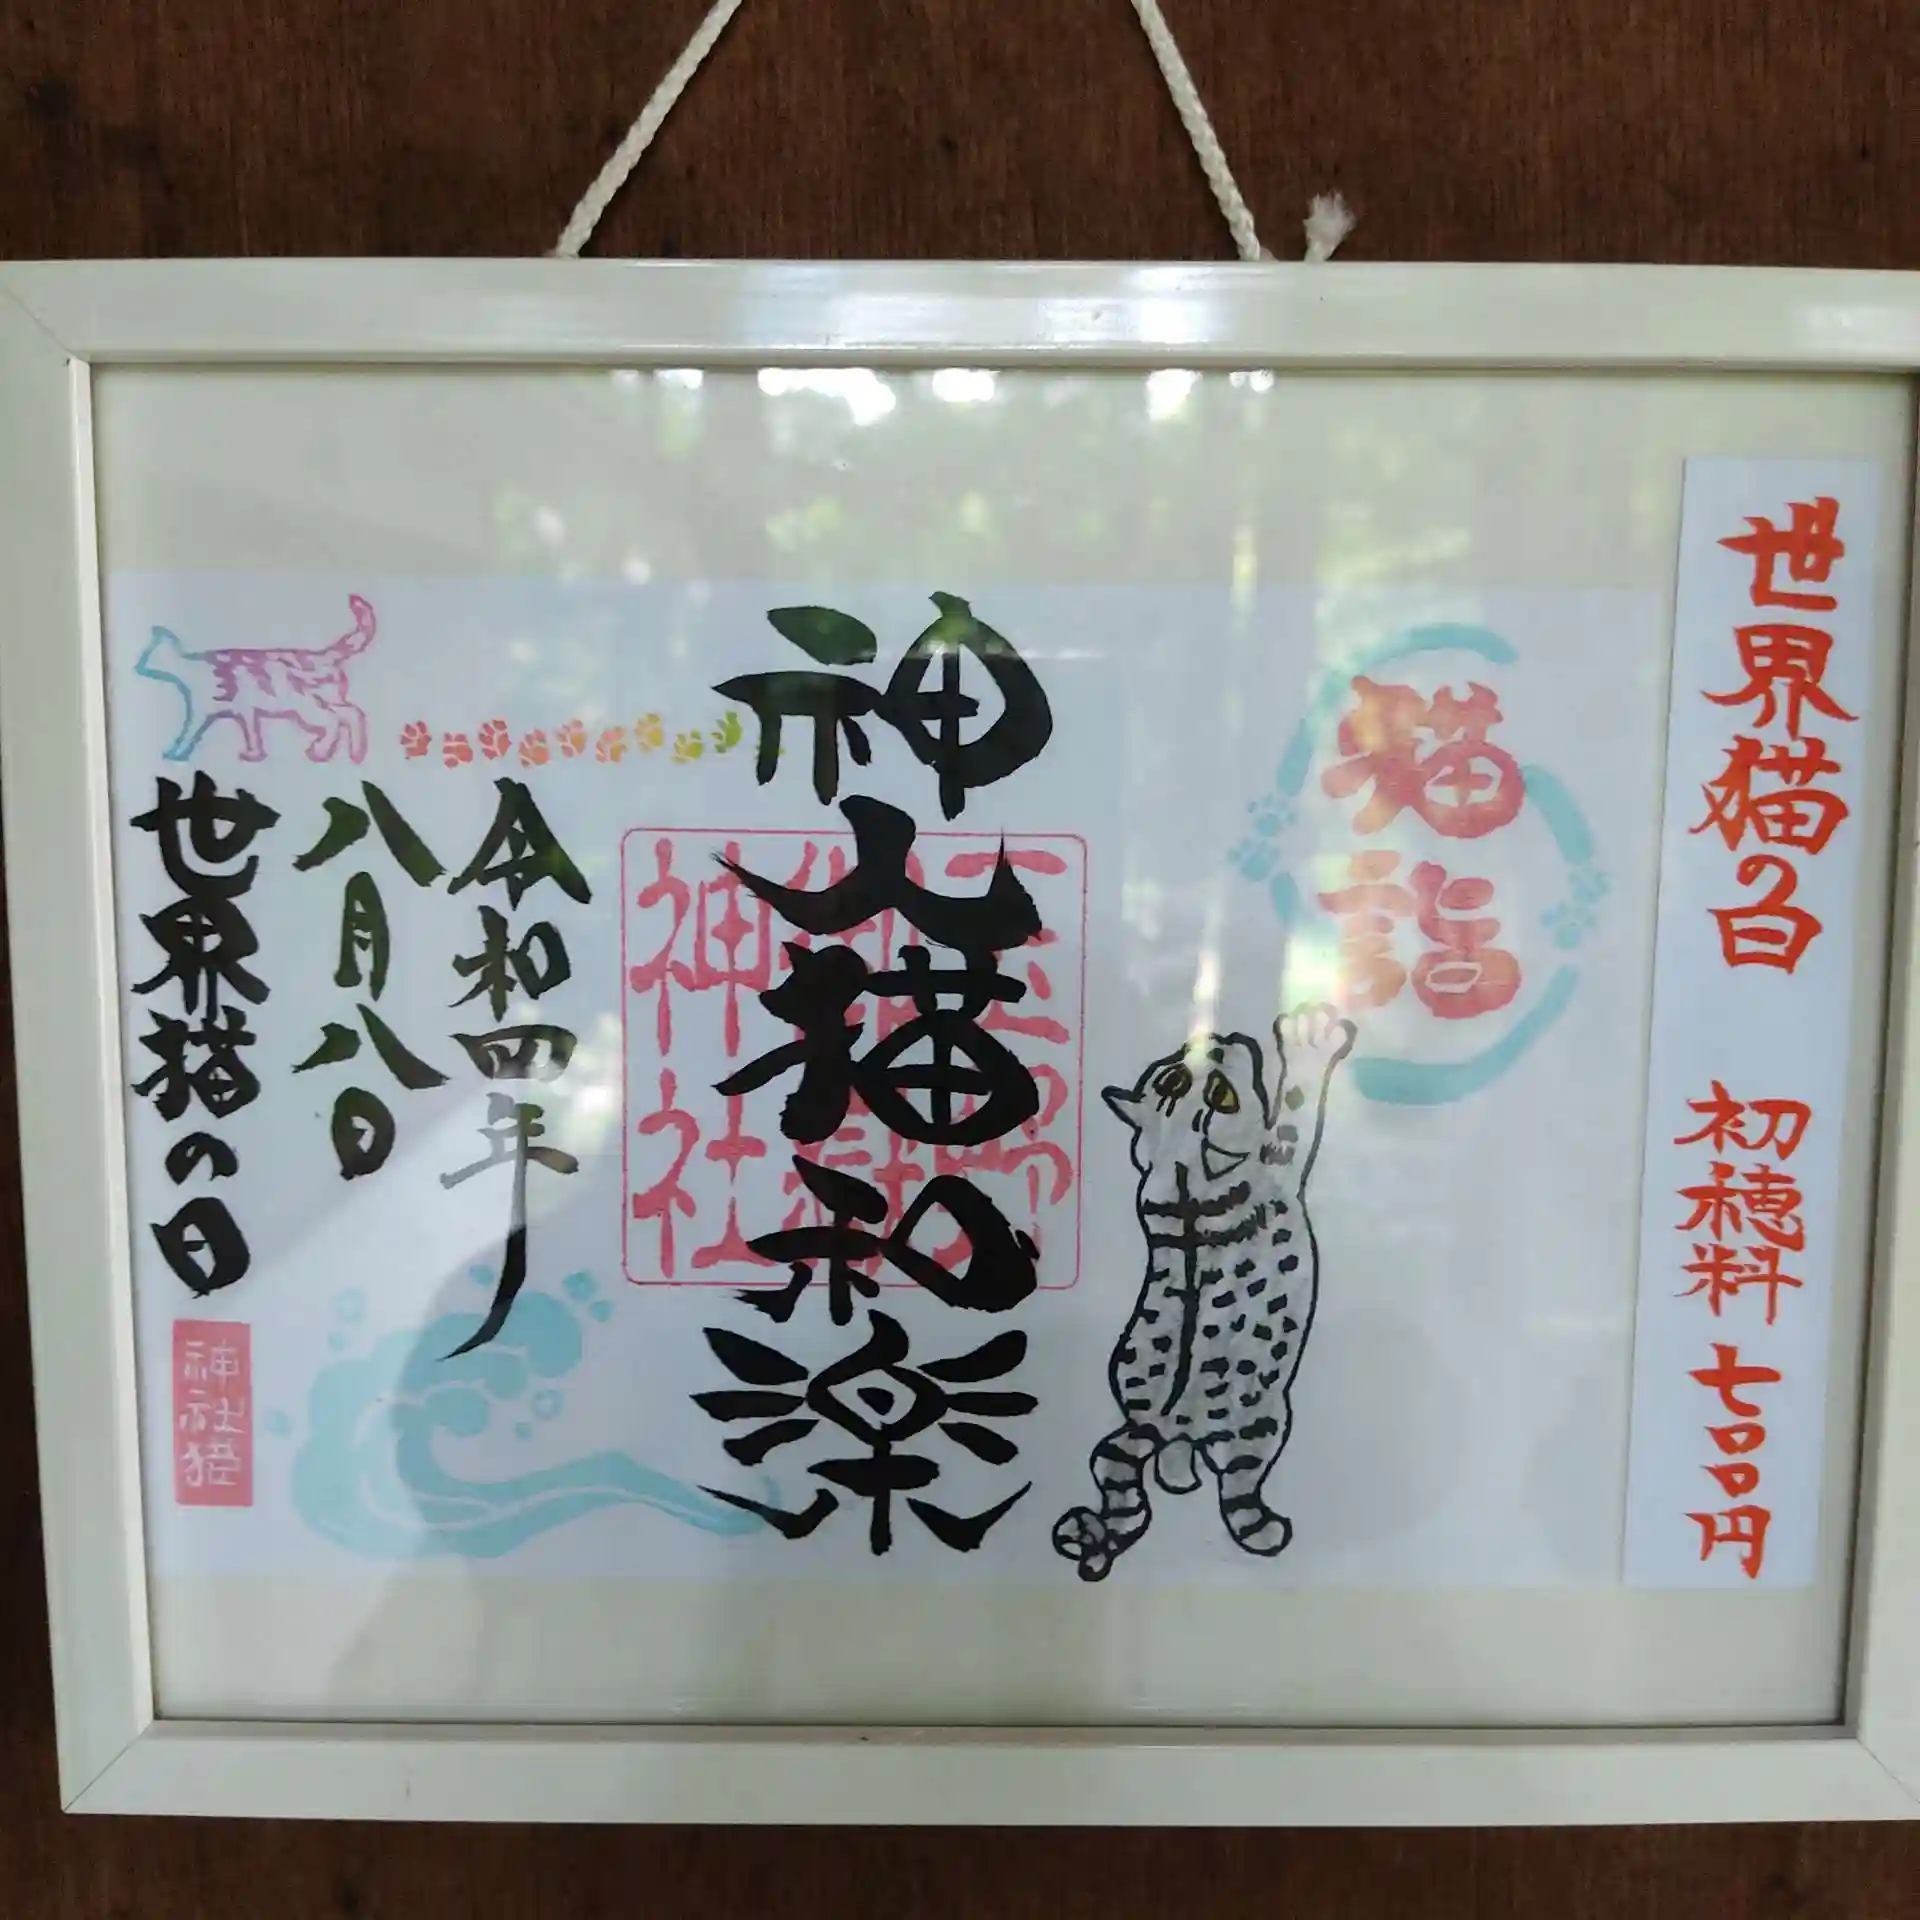 世界猫の日 初穂料 七〇〇円
猫詣
神人猫和楽
御嶽
神社
令和四年
八月八日
世界猫の日
神社猫